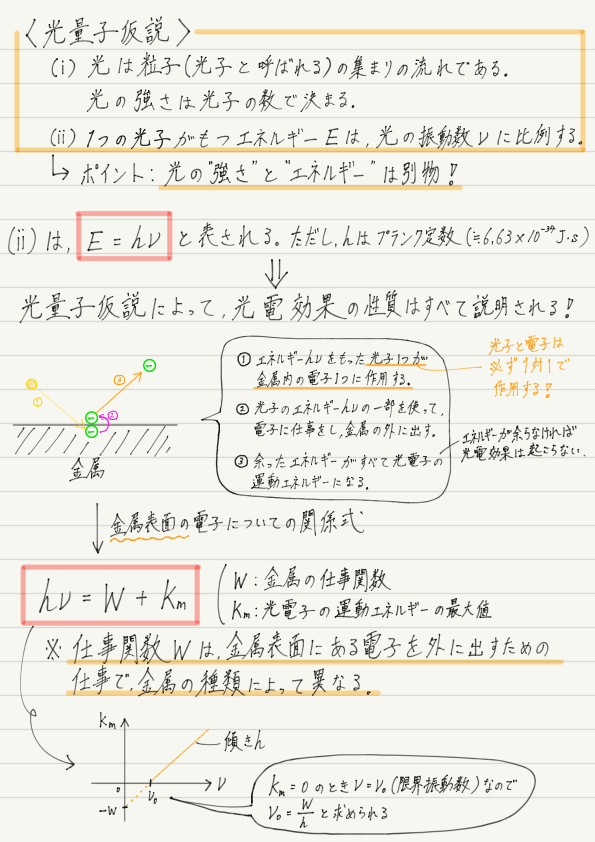 〈光量子仮説〉
(i) 光は粒子(光子と呼ばれる)の集まりの流れである。
光の強さは光子の数で決まる。
(ii) 1つの光子がもつエネルギーEは,光の振動数νに比例する。
↳ ポイント:光の"強さ"と"エネルギー"は別物!
(ii)は, E=hν と表される。ただし,hはプランク定数(≒6.63×10⁻³⁴J・s)
⇓
光量子仮説によって,光電効果の性質はすべて説明される!
① エネルギーhνをもった光子1つが
金属内の電子1つに作用する。
② 光子のエネルギーhνの一部を使って,
電子に仕事をし,金属の外に出す。
③ 余ったエネルギーがすべて光電子の
運動エネルギーになる。
光子と電子は
必ず1対1で
作用する!
エネルギーが余らなければ
光電効果は起こらない.
①
②
③
金属
↓ 金属表面の電子についての関係式
hν = W + Km
W:金属の仕事関数
Km:光電子の運動エネルギーの最大値
※ 仕事関数Wは,金属表面にある電子を外に出すための
仕事で,金属の種類によって異なる。
Km
傾きh
0
ν₀
ν
-W
Km=0のときν=ν₀(限界振動数)なので
ν₀=W/h と求められる